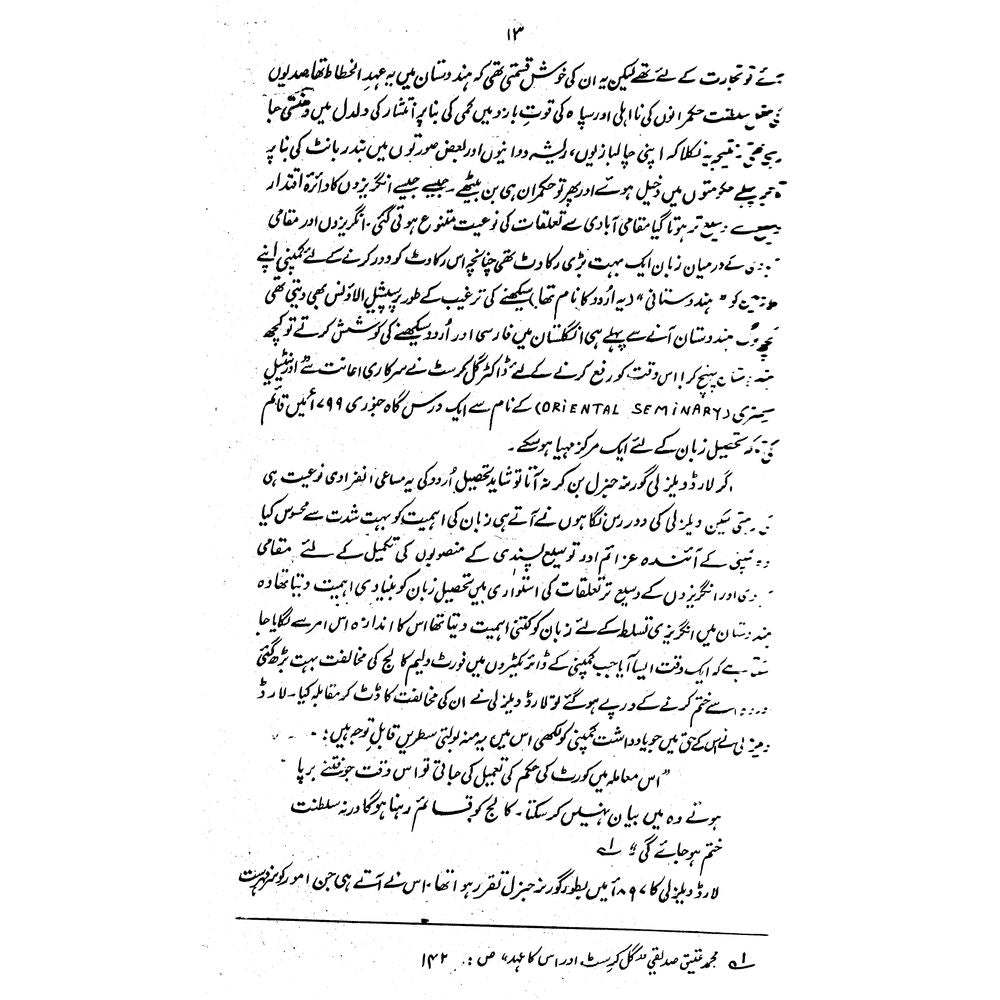 ۱۳
تو تجارت کے لئے تھے لیکن یہ ان کی خوش قسمتی تھی کہ ہندوستان میں یہ عہدِ انحطاط تھا صدیوں
سلطنت حکمرانوں کی نااہلی اور سپاہ کی قوتِ بازو میں کمی کی بنا پر انتشار کی دلدل میں دھنستی جا
رہی تھی نتیجہ یہ نکلا کہ اپنی چالبازیوں، ریشہ دوانیوں اور بعض صورتوں میں بندر بانٹ کی بنا پر
پہلے حکومتوں میں دخیل ہوئے اور پھر تو حکمران ہی بن بیٹھے۔ جیسے جیسے انگریزوں کا دائرۂ اقتدار
وسیع تر ہوتا گیا مقامی آبادی سے تعلقات کی نوعیت متنوع ہوتی گئی۔ انگریزوں اور مقامی
کے درمیان زبان ایک بہت بڑی رکاوٹ تھی چنانچہ اس رکاوٹ کو دور کرنے کے لئے کمپنی اپنے
کو "ہندوستانی" (یہ اُردو کا نام تھا) سیکھنے کی ترغیب کے طور پر سپیشل الاؤنس بھی دیتی تھی
ہندوستان آنے سے پہلے ہی انگلستان میں فارسی اور اُردو سیکھنے کی کوشش کرتے تو کچھ
پہنچ کر! اس دقت کو رفع کرنے کے لئے ڈاکٹر گل کرسٹ نے سرکاری اعانت سے اورنٹیل
(ORIENTAL SEMINARY) کے نام سے ایک درس گاہ جنوری ۱۷۹۹ء میں قائم
کی کہ تحصیل زبان کے لئے ایک مرکز مہیا ہو سکے۔
اگر لارڈ ویلزلی گورنر جنرل بن کر نہ آتا تو شاید تحصیلِ اُردو کی یہ مساعی انفرادی نوعیت ہی
لیکن ویلزلی کی دور رس نگاہوں نے آتے ہی زبان کی اہمیت کو بہت شدت سے محسوس کیا
کے آئندہ عزائم اور توسیع پسندی کے منصوبوں کی تکمیل کے لئے مقامی
اور انگریزوں کے وسیع تر تعلقات کی استواری میں تحصیل زبان کو بنیادی اہمیت دیتا تھا وہ
ہندوستان میں انگریزی تسلط کے لئے زبان کو کتنی اہمیت دیتا تھا اس کا اندازہ اس امر سے لگایا جا
ہے کہ ایک وقت ایسا آیا جب کمپنی کے ڈائرکٹیروں میں فورٹ ولیم کالج کی مخالفت بہت بڑھ گئی
اسے ختم کرنے کے درپے ہو گئے تو لارڈ ویلزلی نے ان کی مخالفت کا ڈٹ کر مقابلہ کیا۔ لارڈ
ویلزلی نے اس کے حق میں جو یادداشت کمپنی کو لکھی اس میں یہ منہ بولتی سطریں قابلِ توجہ ہیں:۔
"اس معاملہ میں کورٹ کی حکم کی تعمیل کی جاتی تو اس وقت جو فتنے برپا
ہوتے وہ میں بیان نہیں کر سکتا۔ کالج کو قائم رہنا ہوگا ورنہ سلطنت
ختم ہو جائے گی" ۱؎
لارڈ ویلزلی کا ۸۹۷اء میں بطور گورنر جنرل تقرر ہوا تھا۔ اس نے آتے ہی جن امور کو سرفہرست
۱؎ محمد عتیق صدیقی "گل کرسٹ اور اس کا عہد" ص: ۱۴۲